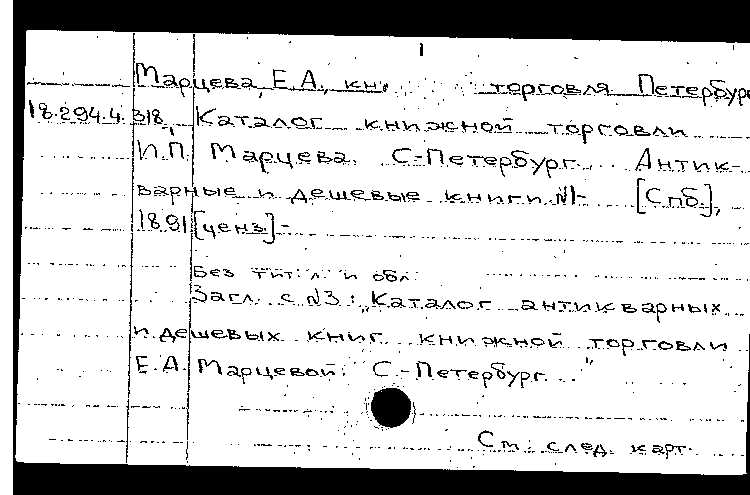 Марцева, Е.А., кн. торговля Петербур
18.294.4.318 Каталог книжной торговли
И.П. Марцева. С-Петербург... Антик-
варные и дешевые книги. №1- [Спб.],
1891 [ценз]-
Без тит. л. и обл.
Загл. с №3: „Каталог антикварных
и дешевых книг книжной торговли
Е.А. Марцевой. С.-Петербург..."
См. след. карт.